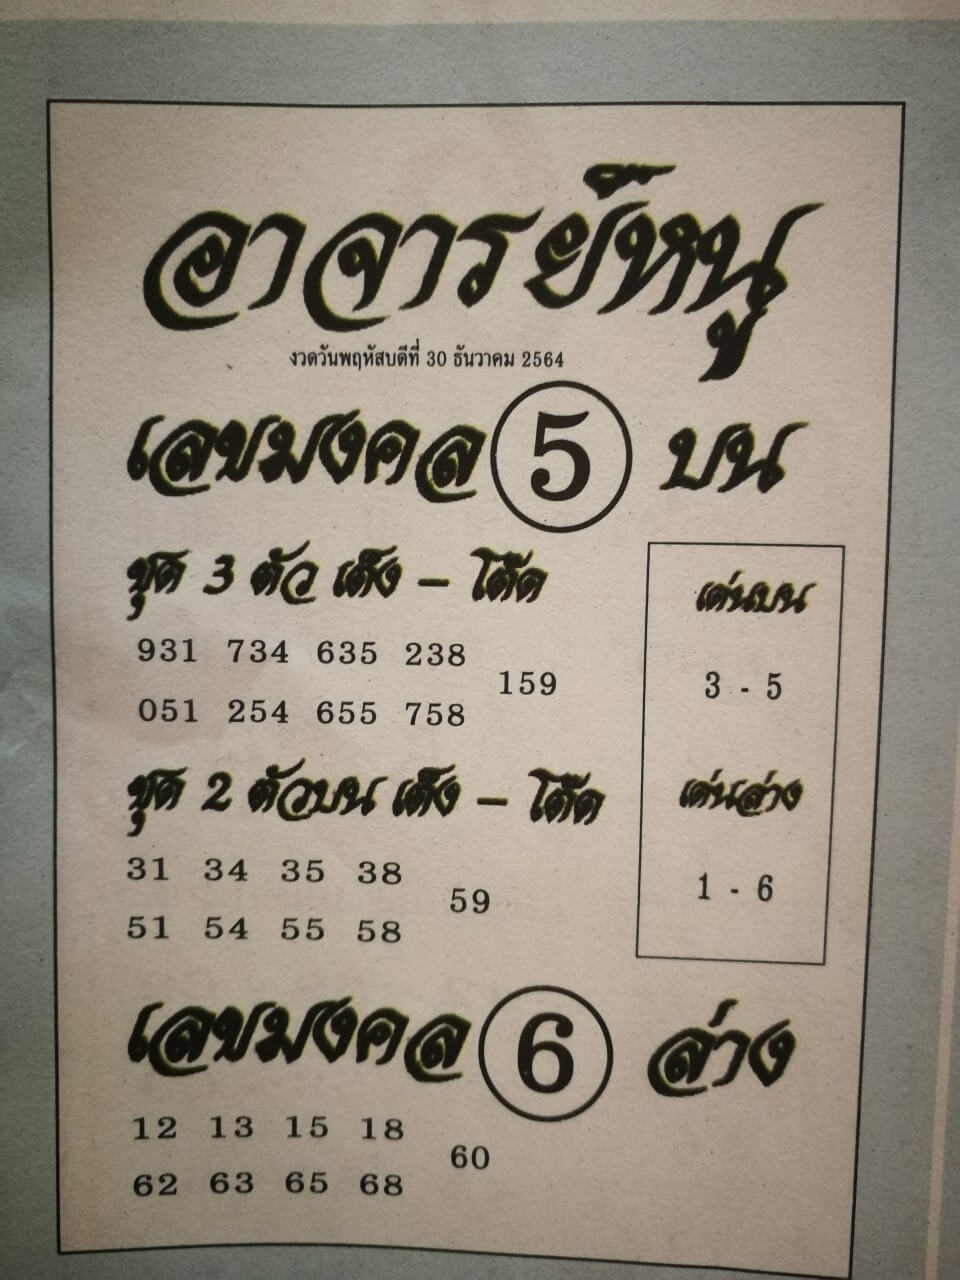 อาจารย์หนู
งวดวันพฤหัสบดีที่ 30 ธันวาคม 2564
เลขมงคล 5 บน
ชุด 3 ตัว เต็ง – โต๊ด
931 734 635 238
159
051 254 655 758
เด่นบน
3 - 5
ชุด 2 ตัวบน เต็ง – โต๊ด
31 34 35 38
59
51 54 55 58
เด่นล่าง
1 - 6
เลขมงคล 6 ล่าง
12 13 15 18
60
62 63 65 68